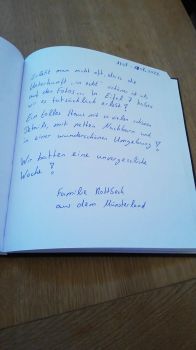 Erlebt man nicht oft, dass die
Unterkunft "in echt" schöner ist als
auf den Fotos... In Eifel haben
wir es tatsächlich erlebt!
Ein tolles Haus mit so vielen schönen
Details, mit netten Nachbarn und
in einer wunderschönen Umgebung!
Wir hatten eine unvergessliche
Woche!
Familie
aus dem Münsterland